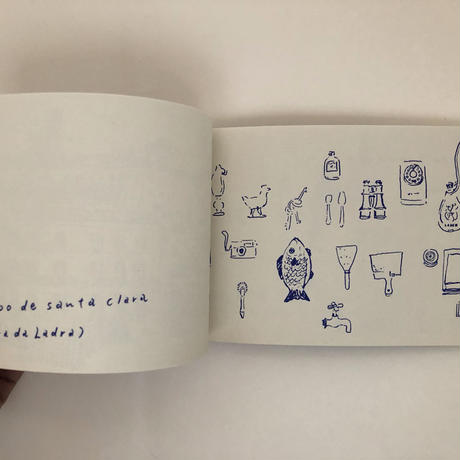 po de santa clara
a da Ladra)